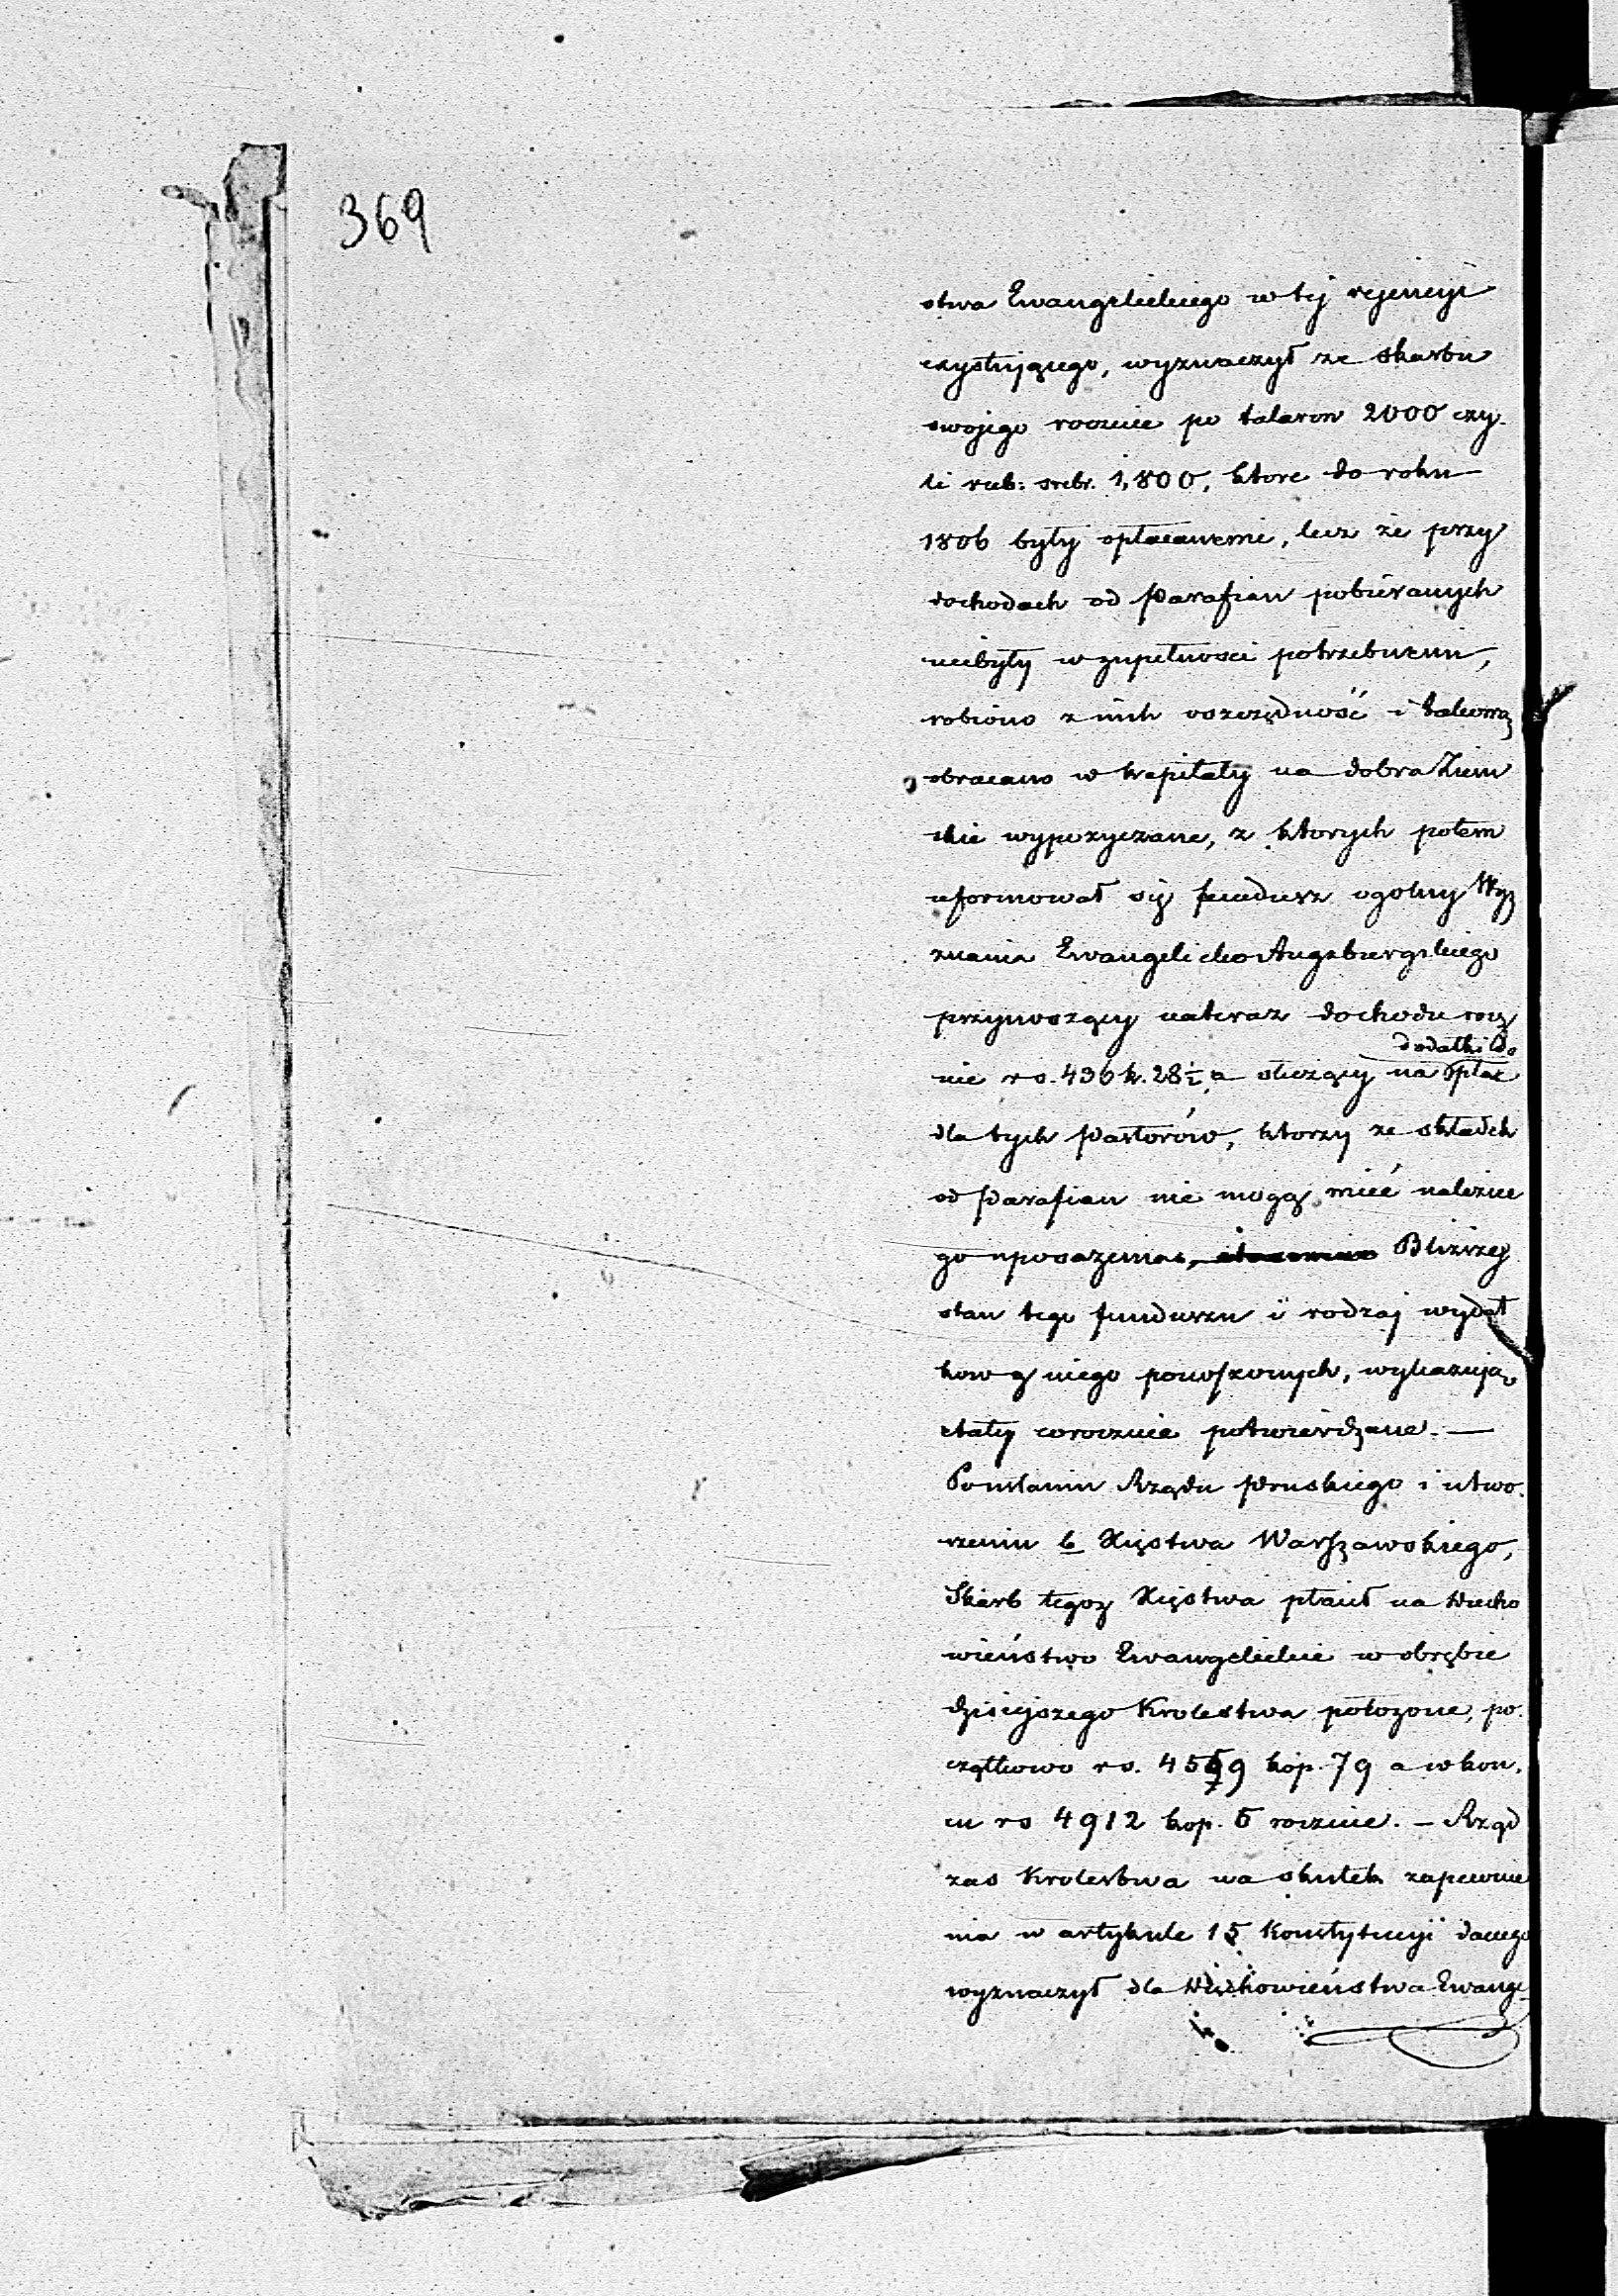 369
stwa Ewangelickiego w tej rejencyi
exystującego, wyznaczył ze skarbu
swojego rocznie po talarow 2000 czy-
li rub: srebr. 1,800, ktore do roku
1806 były opłacanemi, lecz że przy
dochodach od Parafian pobieranych
niebyły w zupełnosci potrzebnemi,
robiono z nich oszczędność i takową
obracano w kapitały na dobra Ziem
skie wypozyczane, z ktorych potem
uformował się fundusz ogolny Wy
znania Ewangelicko Augsburgskiego
przynoszący nateraz dochodu rocz
dodatki do
nie rs. 436 k. 28½ a służący na płac
dla tych Pastorów, ktorzy ze składek
od Parafian nie mogą mieć należne
go uposazenia, Bliższej
stan tego funduszu i rodzaj wydat
kow z niego ponoszonych, wykazują
etaty corocznie potwierdzane. —
Po ustaniu Rządu Pruskiego i utwo-
rzeniu b Xięstwa Warszawskiego,
Skarb tegoz Xięstwa płacił na Ducho
wieństwo Ewangelickie w obrębie
dzisiejszego Krolestwa położone, po-
czątkowo rs. 4559 kop. 79 a w kon-
cu rs 4912 kop. 5 rocznie. — Rząd
zas Krolestwa na skutek zapewnie
nia w artykule 15 Konstytucyi danego
wyznaczył dla Duchowieństwa Ewange-